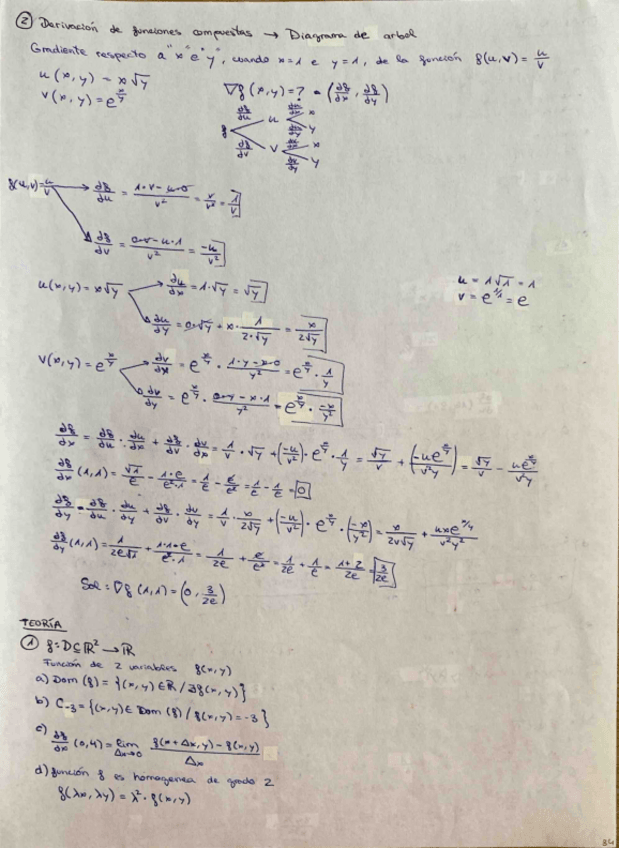 ② Derivación de funciones compuestas → Diagrama de arbol
Gradiente respecto a "x" e "y", cuando x=1 e y=1, de la función g(u,v) = u/v
u(x,y) = x√y
v(x,y) = e^(x/y)
∇g(x,y)=? = (∂g/∂x, ∂g/∂y)
g ∂g/∂u u ∂u/∂x x
∂u/∂y y
∂g/∂v v ∂v/∂x x
∂v/∂y y
g(u,v)=u/v → ∂g/∂u = (1·v - u·0)/v² = v/v² = 1/v
∂g/∂v = (0·v - u·1)/v² = -u/v²
u(x,y) = x√y → ∂u/∂x = 1·√y = √y
∂u/∂y = 0·√y + x·1/(2·√y) = x/(2√y)
u = 1√1 = 1
v = e^(1/1) = e
v(x,y) = e^(x/y) → ∂v/∂x = e^(x/y) · (1·y - x·0)/y² = e^(x/y) · 1/y
∂v/∂y = e^(x/y) · (0·y - x·1)/y² = e^(x/y) · -x/y²
∂g/∂x = ∂g/∂u · ∂u/∂x + ∂g/∂v · ∂v/∂x = 1/v · √y + (-u/v²) · e^(x/y) · 1/y = √y/v + (-ue^(x/y)/v²y) = √y/v - ue^(x/y)/v²y
∂g/∂x (1,1) = √1/e - 1·e/e²·1 = 1/e - e/e² = 1/e - 1/e = 0
∂g/∂y = ∂g/∂u · ∂u/∂y + ∂g/∂v · ∂v/∂y = 1/v · x/(2√y) + (-u/v²) · e^(x/y) · (-x/y²) = x/(2v√y) + uxe^(x/y)/v²y²
∂g/∂y (1,1) = 1/(2e√1) + 1·1·e/e²·1 = 1/2e + e/e² = 1/2e + 1/e = (1+2)/2e = 3/2e
Sol: ∇g (1,1) = (0, 3/2e)
TEORÍA
① g: D⊆ℝ² → ℝ
Función de 2 variables g(x,y)
a) Dom (g) = {(x,y) ∈ ℝ / ∃g(x,y)}
b) C₋₃ = {(x,y) ∈ Dom (g) / g(x,y) = -3}
c) ∂g/∂x (0,4) = lim Δx→0 (g(x+Δx,y) - g(x,y))/Δx
d) función g es homogenea de grado 2
g(λx, λy) = λ² · g(x,y)